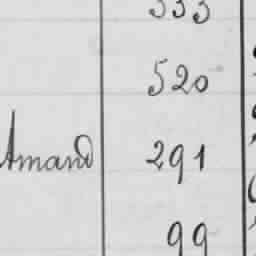 333
520
Amand 291
99